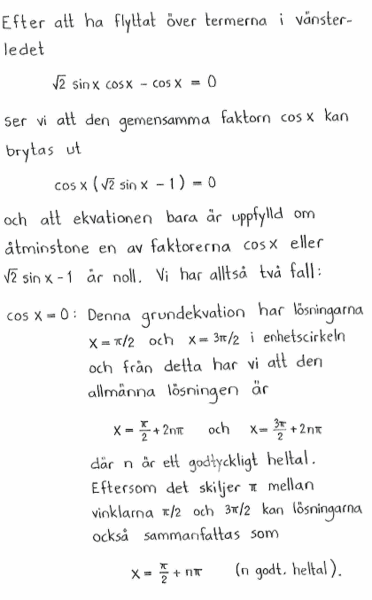 Efter att ha flyttat över termerna i vänster-
ledet
√2 sin x cos x - cos x = 0
ser vi att den gemensamma faktorn cos x kan
brytas ut
cos x (√2 sin x - 1) = 0
och att ekvationen bara är uppfylld om
åtminstone en av faktorerna cos x eller
√2 sin x - 1 är noll. Vi har alltså två fall:
cos x = 0: Denna grundekvation har lösningarna
x = π/2 och x = 3π/2 i enhetscirkeln
och från detta har vi att den
allmänna lösningen är
x = π/2 + 2nπ och x = 3π/2 + 2nπ
där n är ett godtyckligt heltal.
Eftersom det skiljer π mellan
vinklarna π/2 och 3π/2 kan lösningarna
också sammanfattas som
x = π/2 + nπ (n godt. heltal).